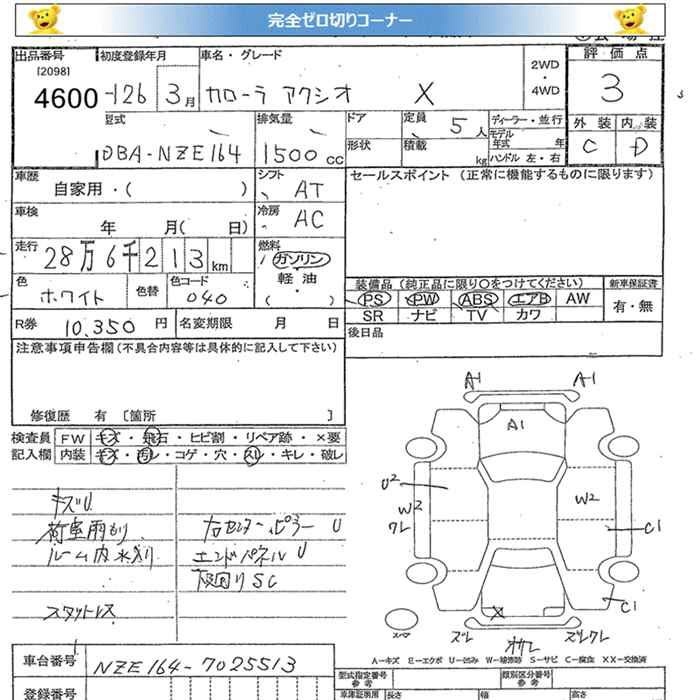 完全ゼロ切りコーナー
出品番号 初度登録年月 車名・グレード 2WD ・ 4WD 評価点
[2098]
4600 126 3月 カローラ アクシオ X 3
型式 排気量 ドア 定員 5人 ディーラー・並行 外装 内装
DBA-NZE164 1500cc 形状 積載 kg モデル年式 年 C D
ハンドル 左・右
車歴 自家用・( ) シフト AT セールスポイント (正常に機能するものに限ります)
車検 年 月( 日) 冷房 AC
走行 28万6千213km 燃料 ガソリン
色 ホワイト 色替 色コード 040 軽油 ( ・ )
装備品 (純正品に限り○をつけてください) 新車保証書
PS PW ABS エアB AW 有・無
SR ナビ TV カワ
R券 10,350円 名変期限 月 日 後日品
注意事項申告欄 (不具合内容等は具体的に記入して下さい)
修復歴 有 [箇所 ]
検査員 FW キズ・飛石・ヒビ割・リペア跡・×要
記入欄 内装 キズ・汚レ・コゲ・穴・スレ・キレ・破レ
キズU
荷室雨もり 右センターピラー U
ルーム内水入り エンドパネル U
下回り SC
スタットレス
A1 A1
A1
U2
W2 W2
ワレ C1
C1
X
ズレ ズレワレ
A-キズ E-エクボ U-凹み W-補修跡 S-サビ C-腐食 XX-交換済
車台番号 NZE164-7025513
型式指定番号 参考 類別区分番号 参考
登録番号 長さ 幅 高さ